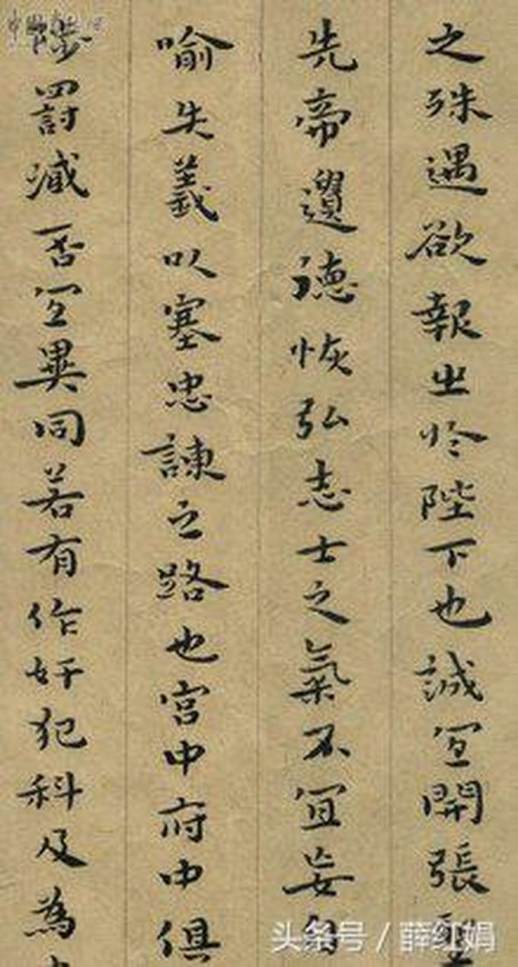 之殊遇欲報之於陛下也誠宜開張聖
先帝遺德恢弘志士之氣不宜妄自
喻失義以塞忠諫之路也宮中府中俱
陟罰臧否宜異同若有作奸犯科及為
头条号 / 薛红娟